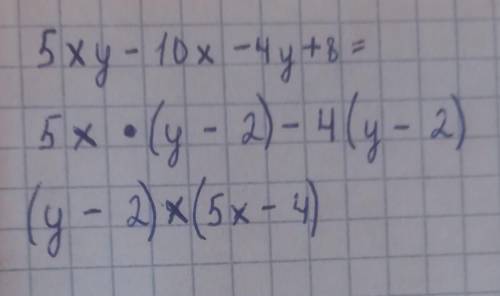 5xy - 10x - 4y + 8 =
5x • (y - 2) - 4(y - 2)
(y - 2) × (5x - 4)